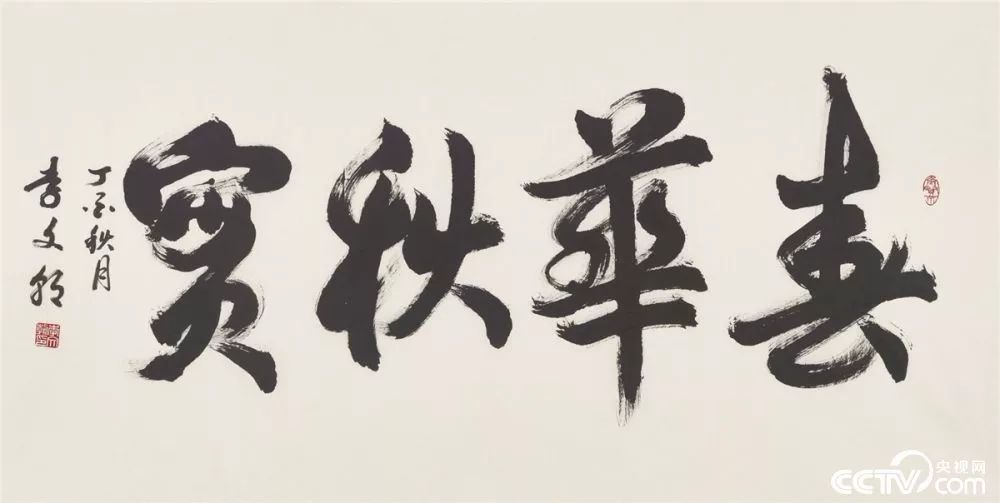 春華秋實
丁酉秋月
李文朝
央视网
CCTV.com